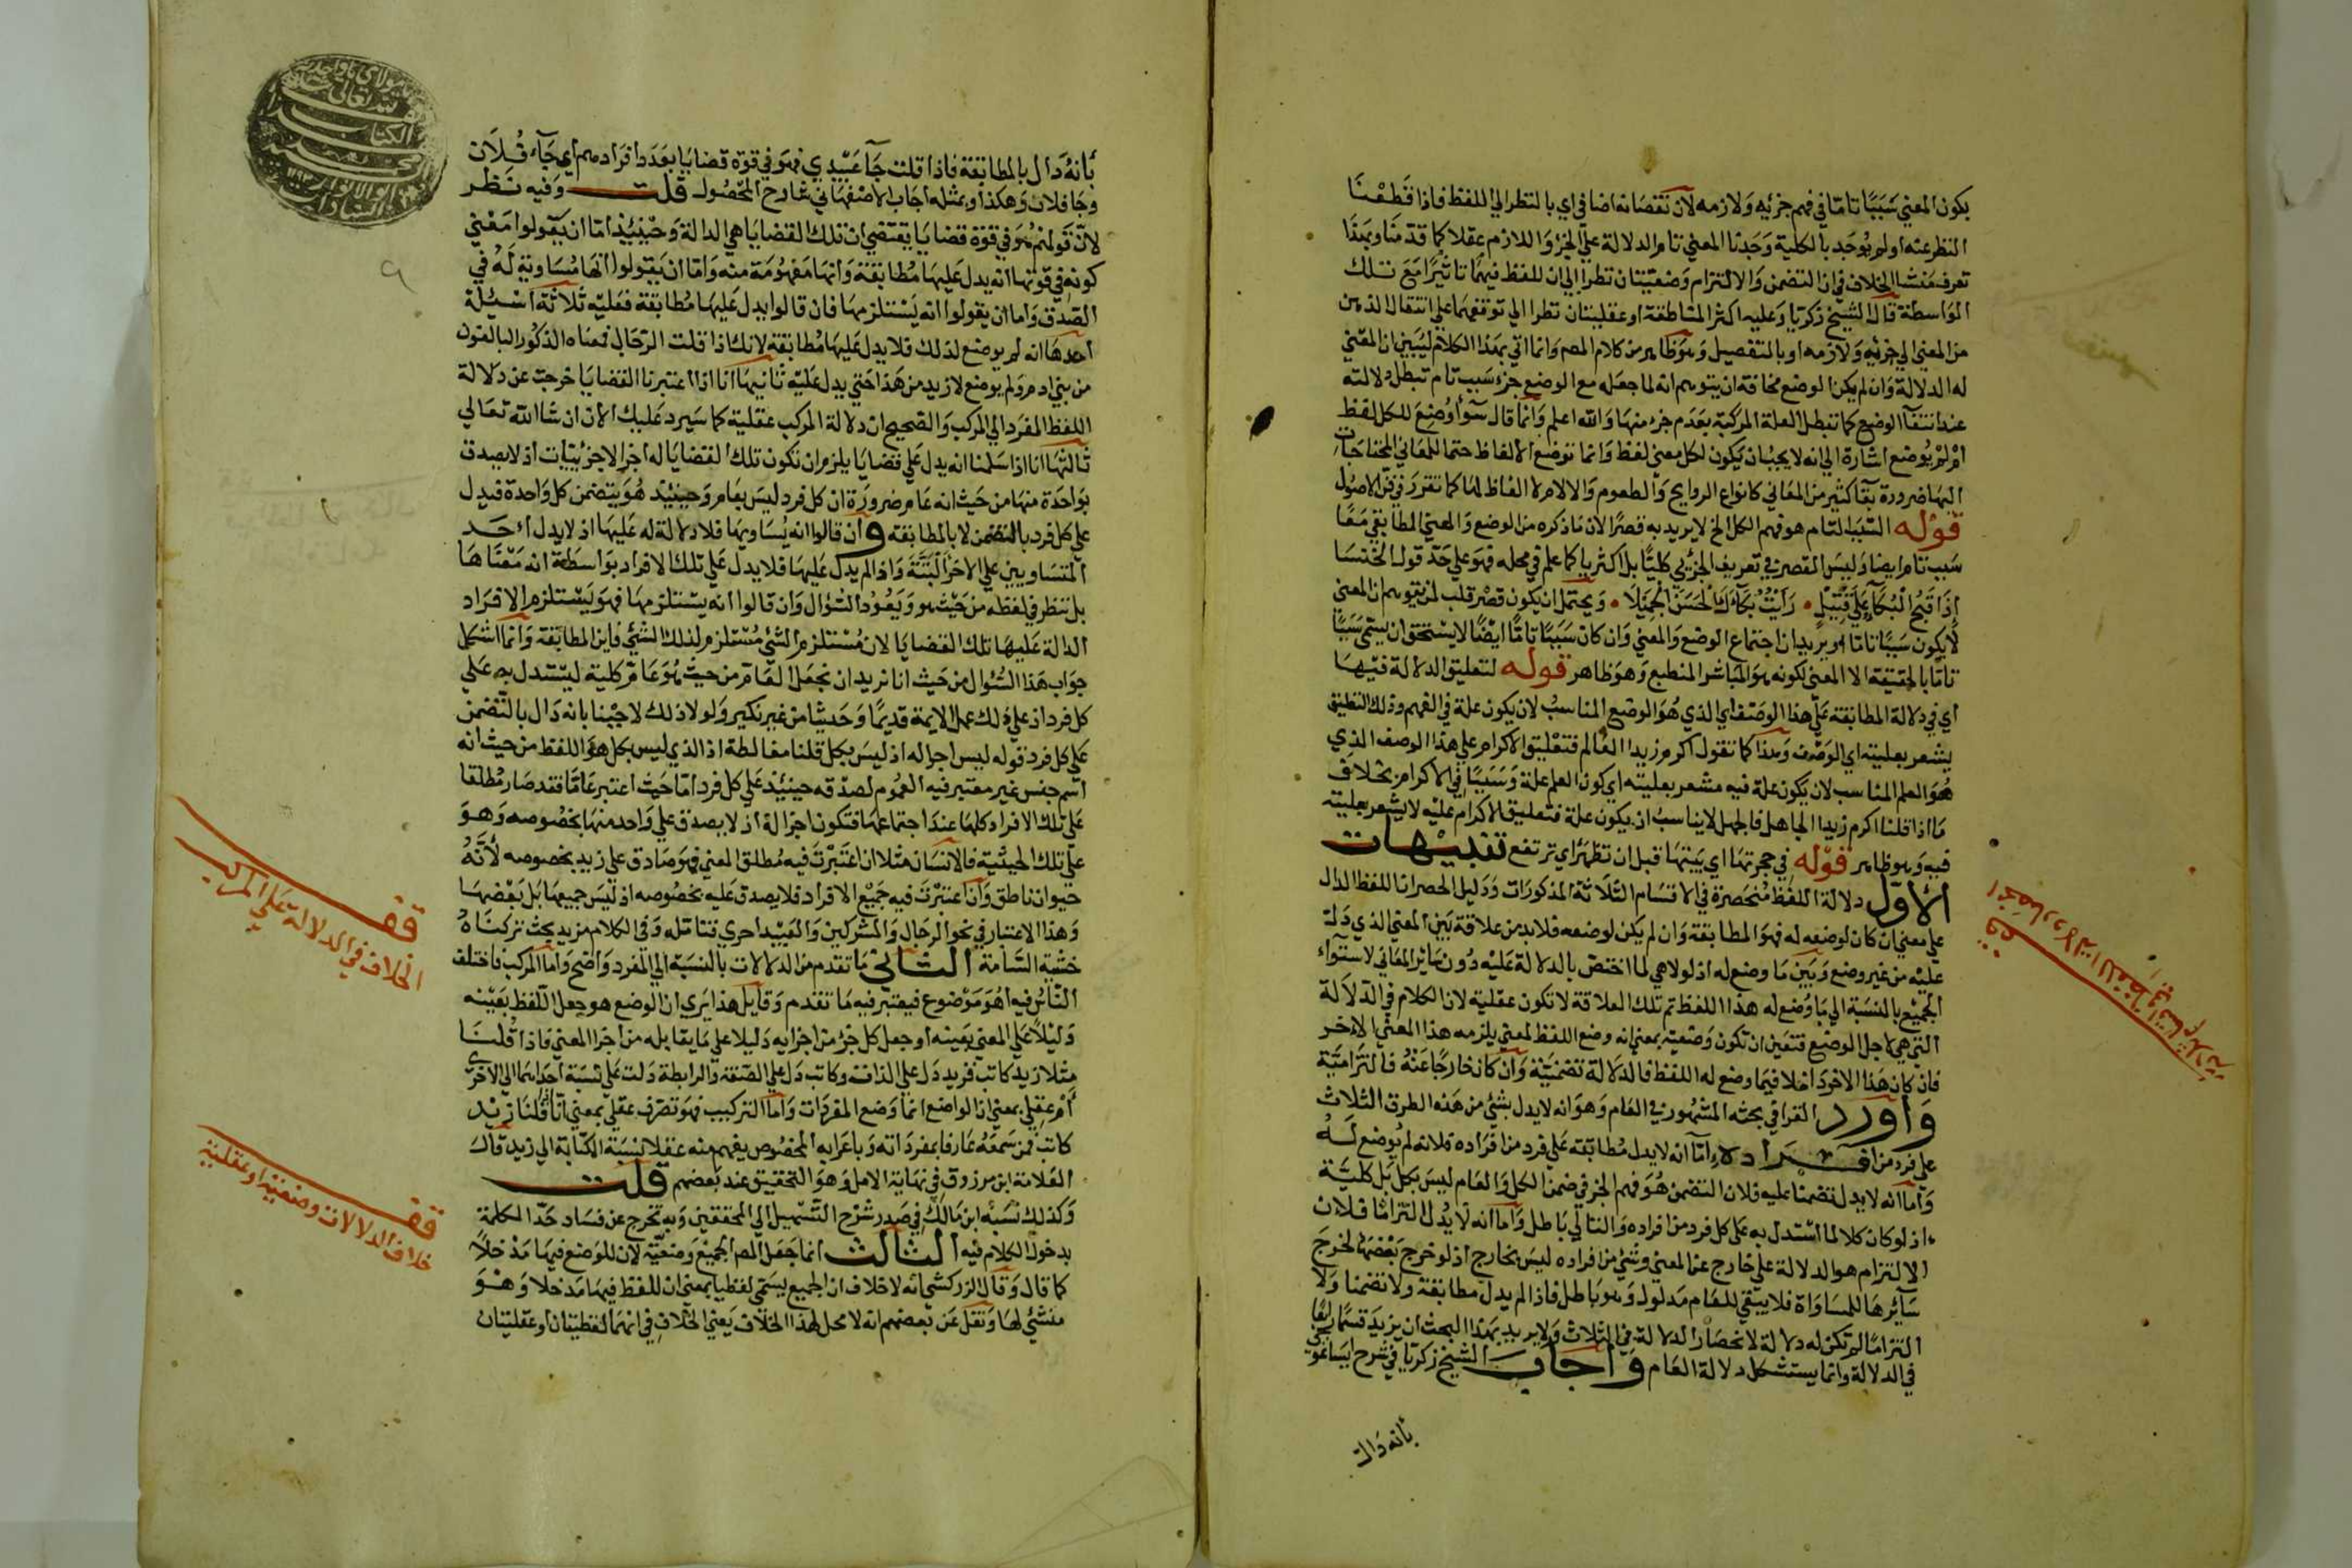 يكون المعني سَبَبًا تامّا في فهم جزئيه وَلازمه لان نقصانه اضافي اي بالنظر الي اللفظ فاذا قَطَعْنَا
النظر عنه اولم يُوجَد بالكلية وَجَدْنا المعني تام الدلالة علي الجزؤ اللازم عقلا كما قدمنا وبهذا
تعرف منشا الخلاف في ان التضمن وَالالتزام وَضعيّتان نظرا الي ان للفظ فيهمًا تاثيرًا مَعَ تلك
الوَاسطة قال الشيخ زكريا وَعليه اكثر المناطقة اوعقليتان نظرا الي توقفهما علي انتقال الذهن
من المعني الي جزئيه وَلازمه اوبالتفصيل وَهوَظاهر من كلام المصم وانما اتي بهذا الكلام ليُبَين ان المعني
له الدلالة وَان لم يكن الوضع مخافة ان يتوهم انه لما جعله مع الوضع جزء سَبب تام تبطل دلالته
عند انتفآ الوضع كما تبطل العلة المركبّة بعَدَم جزء منهَا وَالله اعلم وَانما قال سَوآ وُضِعَ للكل لفظ
امْ لَمْ يُوضع اشارة الي انه لا يجبُ ان يكون لكل معني لفظ وَانما توضع الالفاظ حتما للمعَاني المحتاجَات
اليهَا ضرورة بَقآ كثير من المعَاني كانواع الروايح وَالطعوم وَالالام لا الفاظ لهَا كما تقرر في فن الاصُول
قوْله السّبَب التام هو فهم الكل الخ لا يريد به قصرًا لان مَا ذكره من الوضع وَالمعني المطابقي مَعًا
سَبب تام ايضا وَليسَ القصر في تعريف الجزئي كليًّا بل اكثريا كما علم في محله فهوَ علي حَدّ قول الخنسَا
إِذَا قَبُحَ الْبُكَآءُ عَلَي قَتِيْلٍ • رَأَيْتُ بُكَآءَكَ الْحَسَنَ الْجَمِيلَا • وَيحتمل ان يكون قصْر قلب لمن يتوهم ان المعني
لا يكون سَبَبًا تامّا اويريد ان اجتماع الوضع وَالمعني وَان كان سَببًا تامًّا ايضًا لا يستحق ان يسمّي سَببًا
تامّا بالحقيقة الا المعني لكونه هوَ المبَاشر المنطبع وَهوَ ظاهر قوله لتعليق الدلالة فيهَا
اي في دلالة المطابقة عَلي هذا الوصَف اي الذي هُوَ الوضع المناسبُ لان يكون علة في الفهم وذلك التعليق
يشعر بعليته اي الوَصْف وَهذا كما تقول اكرم زيدا العَالم فتعْليق الاكرام علي هذا الوصف الذي
هُوَ العلم المناسب لان يكون علة فيه مشعر بعليته اي كون العلم علة وَسَبَبًا في الاكرام بخلاف
مَا اذا قلنا اكرم زيدا الجاهل فالجهل لا يناسبُ ان يكون علة فتعليق الاكرام عليْه لا يشعر بعليته
فيه وَهو ظاهر قوْله في حجرتهَا اي بَيتهَا قبل ان تظهَر اي ترتفع تنبيْهات
الأوّل دلالة اللفْظ مُنحَصرة في الاقسَام الثلاثة المذكورَات وَدَليل الحصر ان اللفظ الدال
علي معني ان كان لوضعه له فهوَ المطابقة وَان لم يكن لوضعه فلا بد من علاقة بَين المعني الذي دَلّ
عليْه من غير وضع وَبَين مَا وضع له اذ لولا هي لما اختصّ بالدلالة عَليْه دُون سَائر المعَاني لاستوآء
الجميْع بالنسَبة الي مَا وُضع له هذا اللفظ ثم تلك العلاقة لا تكون عَقلية لان الكلام في الدلالة
التي هي لاجل الوضْع فتعَين ان تكون وَضعية بمعني انه وضع اللفظ لمعني يلزمه هذا المعني الاخر
فان كان هَذا الاخر دَاخلا فيما وضع له اللفظ فالدلالة تضمنيّة وَان كان خارجًا عَنْهُ فالتزاميّة
وَأورد القرافي بحثه المشهُور في العَام وَهوَ انه لا يدل بشئي من هَذه الطرق الثلاث
علي فرد من افـرَاده اِمّا انه لا يدل مُطابقة عَلي فرد من افرَاده فلانه لم يُوضع لَـهُ
وَامّا انه لا يدل تضمنًا عليه فلان التضمن هُوَ فهم الجزء في ضمن الكل وَالعَام ليسَ بكل بَل كليّة
اذ لو كان كلا لما اسْتدل به عَلي كل فرد من افراده وَالتالي بَاطل وَامّا انه لا يُدل التزامًا فلان
الالتزام هو الدلالة علي خارج عن المعني وشئي من افراده ليسَ بخارج اذ لو خرج بَعْضهَا لخرَج
سَآئِرهَا للمسَاوَاة فلا يبقي للعَام مَدلول وَهوَ بَاطل فاذا لم يدل مطابقة ولا تضمنا وَلا
التزامًا لم تكن له دلالة لانحصَار الدلالة في الثلاث وَلا يريد بهذا البحث ان يزيدَ قسْمًا رابعًا
في الدلالة وانما يستشكل دلالة العَام وَأجَابَ الشيخ زكريّا في شرح ايسَاغوجي
بانه دَال
انحصار دلالة اللفظ في اقسام ثلاثة
بأنهُ دَال بالمطابَقة فاذا قلت جَآ عَبِيْدِي فهوَ في قوة قضايَا بعَدَد افرَادهم اي جَآء فُـلَان
وجَا فلان وَهكذا وبمثله اجَابَ الاصْفهَاني شارح المحْصُول قلت وَفيه نَـظر
لانّ قوْلهُم هُوَ في قوّة قضايَا يقتضي ان تلك القضايَا هي الدالة وَحِيْنئِذٍ امّا ان يَقولوا مَعْني
كونهِ في قوتهَا انه يدل عَليهَا مُطابقة وَانهَا مَفهُومَة منه وَامّا ان يَقولوا انهَا مُسَاوية لَهُ في
الصّدق وَاما ان يقولوا انه يَسْتلزمهَا فان قالوا يدل عَليهَا مُطابقة فعَليْه ثَلاثَة اسْـئِلة
احدهَا انه لم يوضع لذلك فلا يدل عَليهَا مُطابقة لانك اذا قلت الرّجَال فمعناه الذكور البالغون
من بني ادم وَلم يوضع لازيد من هَذا حَتي يدل عَليْه ثانيهَا انا اذا اعتبرنا القضايَا خرجت عن دلالة
اللفظ المفرَد الي المركب وَالصّحيح ان دلالة المركب عَقلية كما سَيرد عَليك الان ان شا الله تعَالي
ثالثهَا انا اذا سَلمنا انه يدل عَلي قضايَا يلزم ان تكون تلك القضايَا له اجزا لا جزئيّات اذ لا يصدق
بوَاحدَة منهَا من حَيث انه عَام ضرورَة ان كل فرد ليسَ بعَام وَحينئِذ هُوَ يتضمن كل وَاحدة فيدل
علي كل فرد بالتضمن لا بالمطابقة وَ ان قالوا انه يُسَاويهَا فلا دلالة له عَليهَا اذ لا يدل احَـد
المتسَاويين علي الاخرَ الْبَتَّةَ وَاذا لم يدلّ عَليهَا فلا يدل عَلي تلك الافراد بوَاسَطة انه مَعْناهَا
بل ننظر في لفظه من حَيْث هو وَيَعُوُد السُّؤال وَان قالوا انه يستلزمهَا فهوَ يَسْتلزم الافـرَاد
الدالة عَليهَا تلك القضايَا لان مُسْتلزم الشئي مُسْتلزم لذلك الشئي فاين المطابَقة وَانمّا اشكل
جوَابُ هَذا السُّؤال من حَيث انا نريد ان نجعَل العَام من حيث هُوَ عَام كلية ليسْتدل به عَلي
كل فرد اذ علي ذلك عمل الايمة قديمًا وَحَديثا من غير نكير وَلولا ذلك لاجبْنا بانه دَال بالتّضمن
عَلي كل فرد قوله ليس اجزا له اذ ليسَ بكل قلنا مغالطة اذ الذي ليس بكل هوَ اللفظ من حيث انه
اسم جنس غير معتبر فيه العمُوم لصدْقه حينئِذ عَلي كل فرد امّا حَيث اعتبر عَامّا فقد صَار مُطلقا
عَلي تلك الافراد كلهَا عندَ اجتماعهَا فتكون اجزا له اذ لا يصدق علي وَاحد منهَا بخصُوصه وَهـوَ
علي تلك الحيثيّة فالانسَان مثلا ان اعتَبَرْت فيه مُطلق المعني فهوَ صَادق علي زيد بخصوصه لأنّهُ
حيوان ناطق وَان اعتبَرْت فيه جَميْع الافراد فلا يصدق عَليه بخصُوصه اذ ليْسَ جميعهَا بَل بَعْضهَا
وَهذا الاعتبار في نحو الرجَال وَالمشركينَ وَالعَبيد احري فتامّله وَفي الكلام مزيد بحث تركنَاهُ
خشيَة السَّآمَة الثـاني مَا تقدم من الدلالات بالنسَبة الي المفرد وَاضح وَاما المركب فاختلف
النّاسُ فيه اهُوَ مَوْضوع فيعتبر فيه مَا تقدم وَقايل هذا يَري ان الوضع هو جعل اللفظ بعَيْنه
دَليْلًا عَلي المعني بعَينه اوجعل كل جزء من اجزايه دَليلا علي مَا يقابله من اجزا المعني فاذا قُلنـَا
مثلا زيد كاتب فزيد دَل علي الذات وكاتب دَل علي الصّفة والرابطة دَلت عَلي نسَبة احداهمَا الي الاخرَي
أمْ عقلي بمعني ان الواضع انمّا وَضع المفردَات وَامّا التركيب فهوَ تصَرف عَقلي بمعني انا اذا قُلنا زَيْد
كاتب فمن سَمعَهُ عَارفا بمفردَاته وَباعرَابه المخصُوص يفهم منه عَقلا نسَبة الكتابَة الي زيد قالَ
العَلامة ابن مرزوق في نهَاية الامل وَهوَ التحقيق عند بَعضهم قلت
وَكذلك نَسَبَهُ ابن مَالِك في صَدر شرْح التَّسْهيل الي المحققين وَبه تخرج عن فسَاد حَدّ الكلمة
بدخول الكلام فيه الثالث انما جَعَل المصم الجميْعَ وَضعيّة لان للوَضع فيهَا مَدْخلاً
كما قال وَقال الزركشي انه لا خلاف ان الجميع يسَمّي لفظيا بمعني ان للفظ فيهَا مَدخلا وَهْـوَ
منشئي لهَا وَنقل عَن بَعضهم انه لا محل لهذا الخلاف يَعني الخلاف في انهما لفظيتان اوعَقليتان
قف
الخلاف في الدلالة علي المركب
قف
خلاف الدلالات وضعيّة اوعقلية
٩